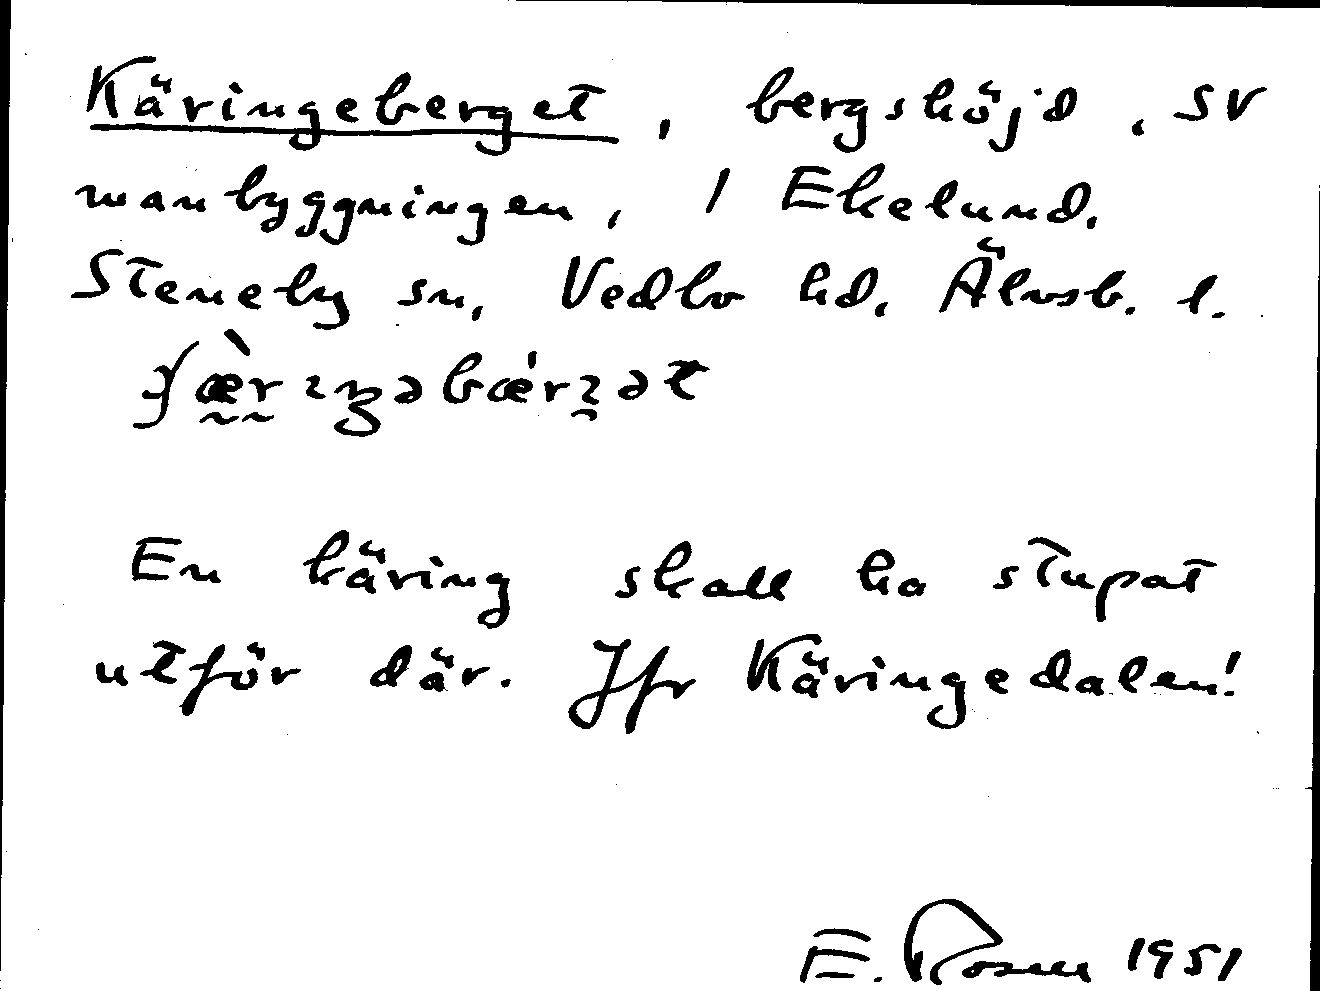 Käringeberget, bergshöjd, SV
manbyggningen, 1 Ekelund.
Steneby sn, Vedbo hd, Älvsb. l.
En käring skall ha stupat
utför där. Jfr Käringedalen!
E. Rosell 1951